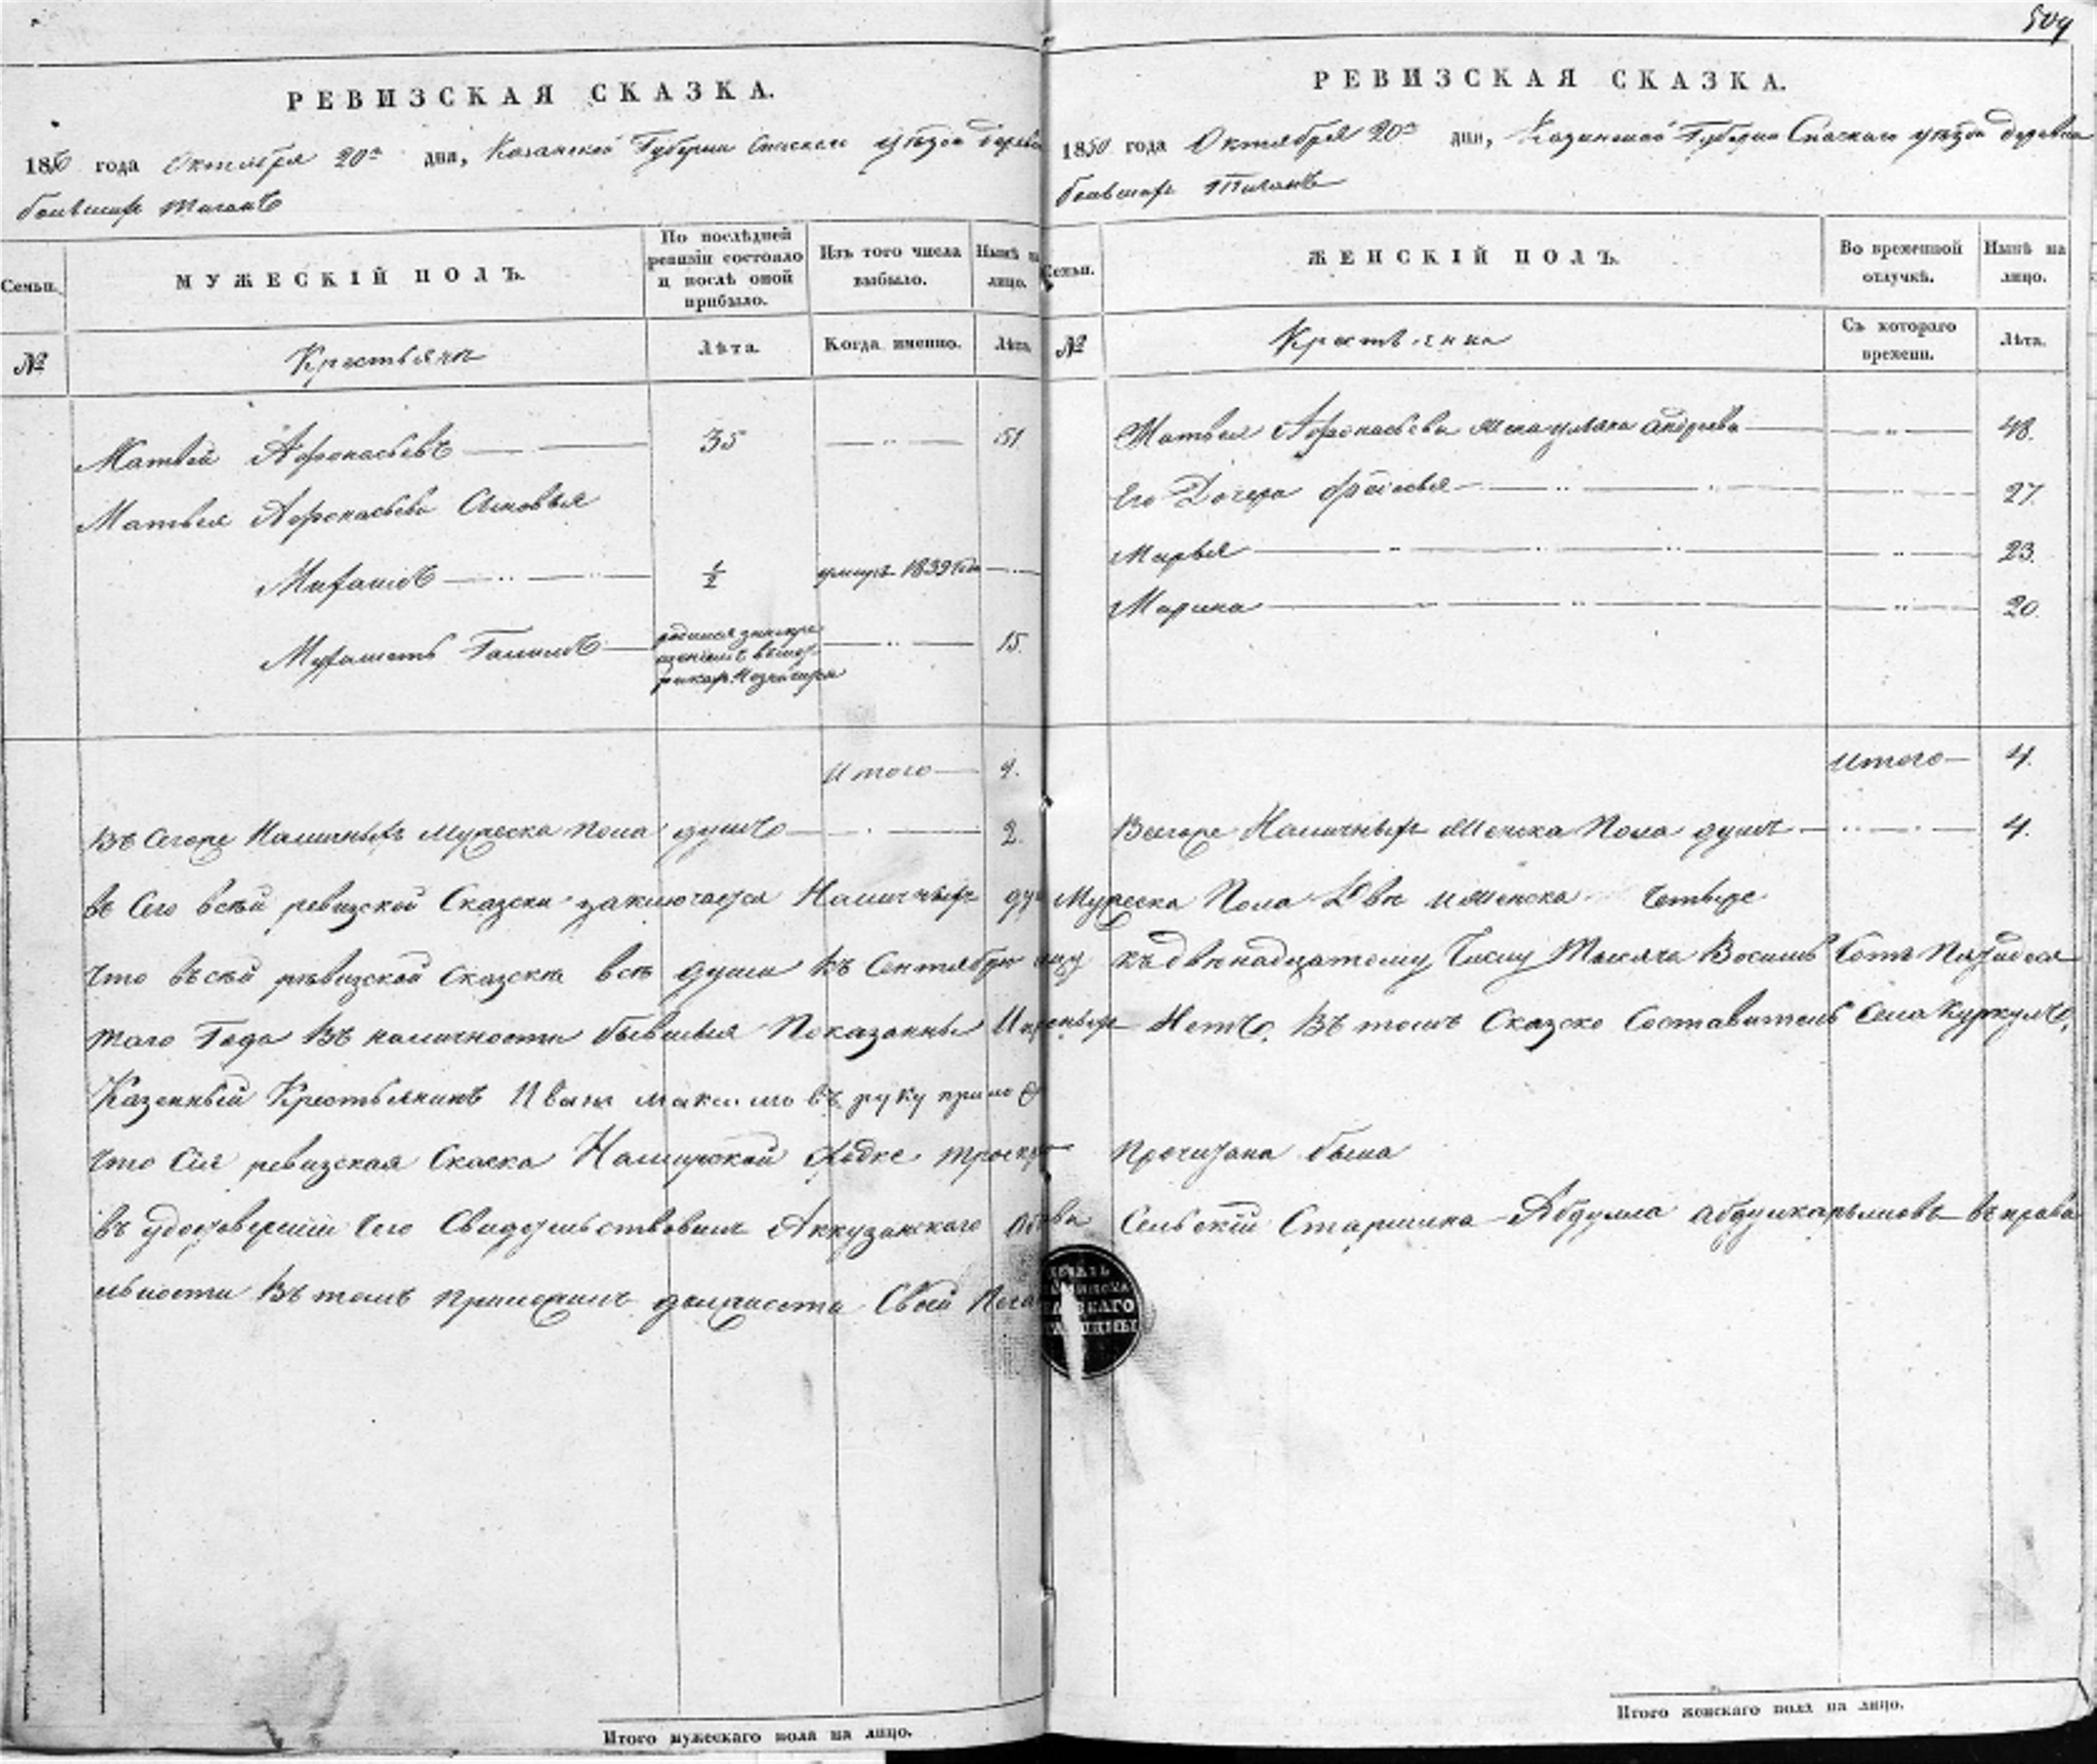 509
РЕВИЗСКАЯ СКАЗКА.
1850 года Октября 20го дня, Казанской Губернии Спаского уѣзда деревни
большихъ Тиганъ
Семьи.
МУЖЕСКІЙ ПОЛЪ.
По послѣдней ревизіи состояло и послѣ оной прибыло.
Изъ того числа выбыло.
Нынѣ на лицо.
№
Крестьяни
Лѣта.
Когда именно.
Лѣта.
Матвей Афонасьевъ 35 51
Матвея Афонасьева Сыновья
½ умиръ 1839 года
родился
15.
Итого 2.
Въ Сегоже Наличныхъ Мужеска Пола душъ 2.
РЕВИЗСКАЯ СКАЗКА.
1850 года Октября 20го дня, Казанской Губернии Спаского уѣзда деревни
большихъ Тиганъ
Семьи.
ЖЕНСКІЙ ПОЛЪ.
Во временной отлучкѣ.
Нынѣ на лицо.
№
Крестьянки
Съ котораго времени.
Лѣта.
Матвея Афонасьева жена Андреева 48.
Его Дочери 27
Марья 23.
Марина 20.
Итого 4.
Всегоже Наличныхъ Женска Пола душъ 4.
въ Сего всѣй ревизской Сказски заключается Наличныхъ душъ Мужеска Пола Двѣ и Женска Четыре
Что въ сѣй ревизской Сказскѣ всѣ души къ Сентябрю къ двѣнадцатому Числу Тысяча Восимь Сотъ Пятидеся
таго Года Въ наличности бывшыя Показанны Нетъ, Въ томъ Сказско Составитель Села Куркулъ,
Казенный Крестьянинъ Иванъ Максимовъ руку прило
Что Сія ревизская Скаска На Сходке Прочитана была
въ удостоверении Чего Свидетельствовалъ Аккузанскаго Сельскій Старшина Абдулла Абдулкарымовъ въ права
льности Въ томъ Приложилъ Свой Печать
ПЕЧАТЬ
Итого мужескаго пола на лицо.
Итого женскаго пола на лицо.